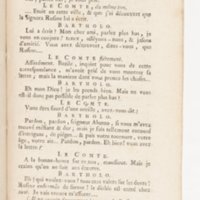 LE COMTE, du même ton.
Enfin en cette ville, & que j'ai découvert que
la Signora Rosine lui a écrit.
BARTHOLO.
Lui a écrit? Mon cher ami, parlez plus bas, je
vous en conjure! tenez, asséyons-nous, & jasons
d'amitié. Vous avez découvert, dites-vous, que
Rosine...
LE COMTE fièrement.
Assurément. Basile, inquiet pour vous de cette
correspondance, m'avoit prié de vous montrer
la lettre; mais la manière dont vous prenez les choses...
BARTHOLO.
Eh mon Dieu! je les prends bien. Mais ne vous
est-il donc pas possible de parler plus bas?
LE COMTE.
Vous êtes sourd d'une oreille, avez-vous dit.
BARTHOLO.
Pardon, pardon, Seigneur Alonzo, si vous m'avez
trouvé méfiant & dur; mais je suis tellement entouré
d'intrigans, de pièges... & puis votre tournure, votre
âge, votre air... Pardon, pardon. Eh bien! vous avez
la lettre?
LE COMTE.
A la bonne-heure sur ce ton, monsieur. Mais je
crains qu'on ne soit aux écoutes.
BARTHOLO.
Eh! qui voulez-vous? tous mes valets sur les dents!
Rosine enfermée de fureur! le diable est entré chez
moi. Je vais encore m'assurer...